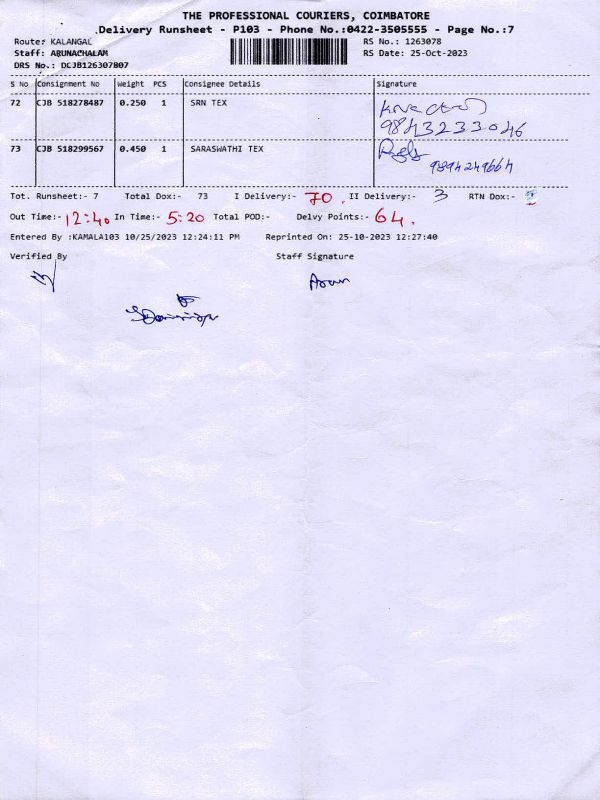 THE PROFESSIONAL COURIERS, COIMBATORE
Delivery Runsheet - P103 - Phone No.:0422-3505555 - Page No.:7
Route: KALANGAL RS No.: 1263078
Staff: ARUNACHALAM RS Date: 25-Oct-2023
DRS No.: DCJB126307807
S No Consignment No Weight PCS Consignee Details Signature
72 CJB 518278487 0.250 1 SRN TEX
9843233046
73 CJB 518299567 0.450 1 SARASWATHI TEX
9894249664
Tot. Runsheet:- 7 Total Dox:- 73 I Delivery:- 70. II Delivery:- 3 RTN Dox:-
Out Time:- 12:40 In Time:- 5:20 Total POD:- Delvy Points:- 64.
Entered By :KAMALA103 10/25/2023 12:24:11 PM Reprinted On: 25-10-2023 12:27:40
Verified By Staff Signature
Arun